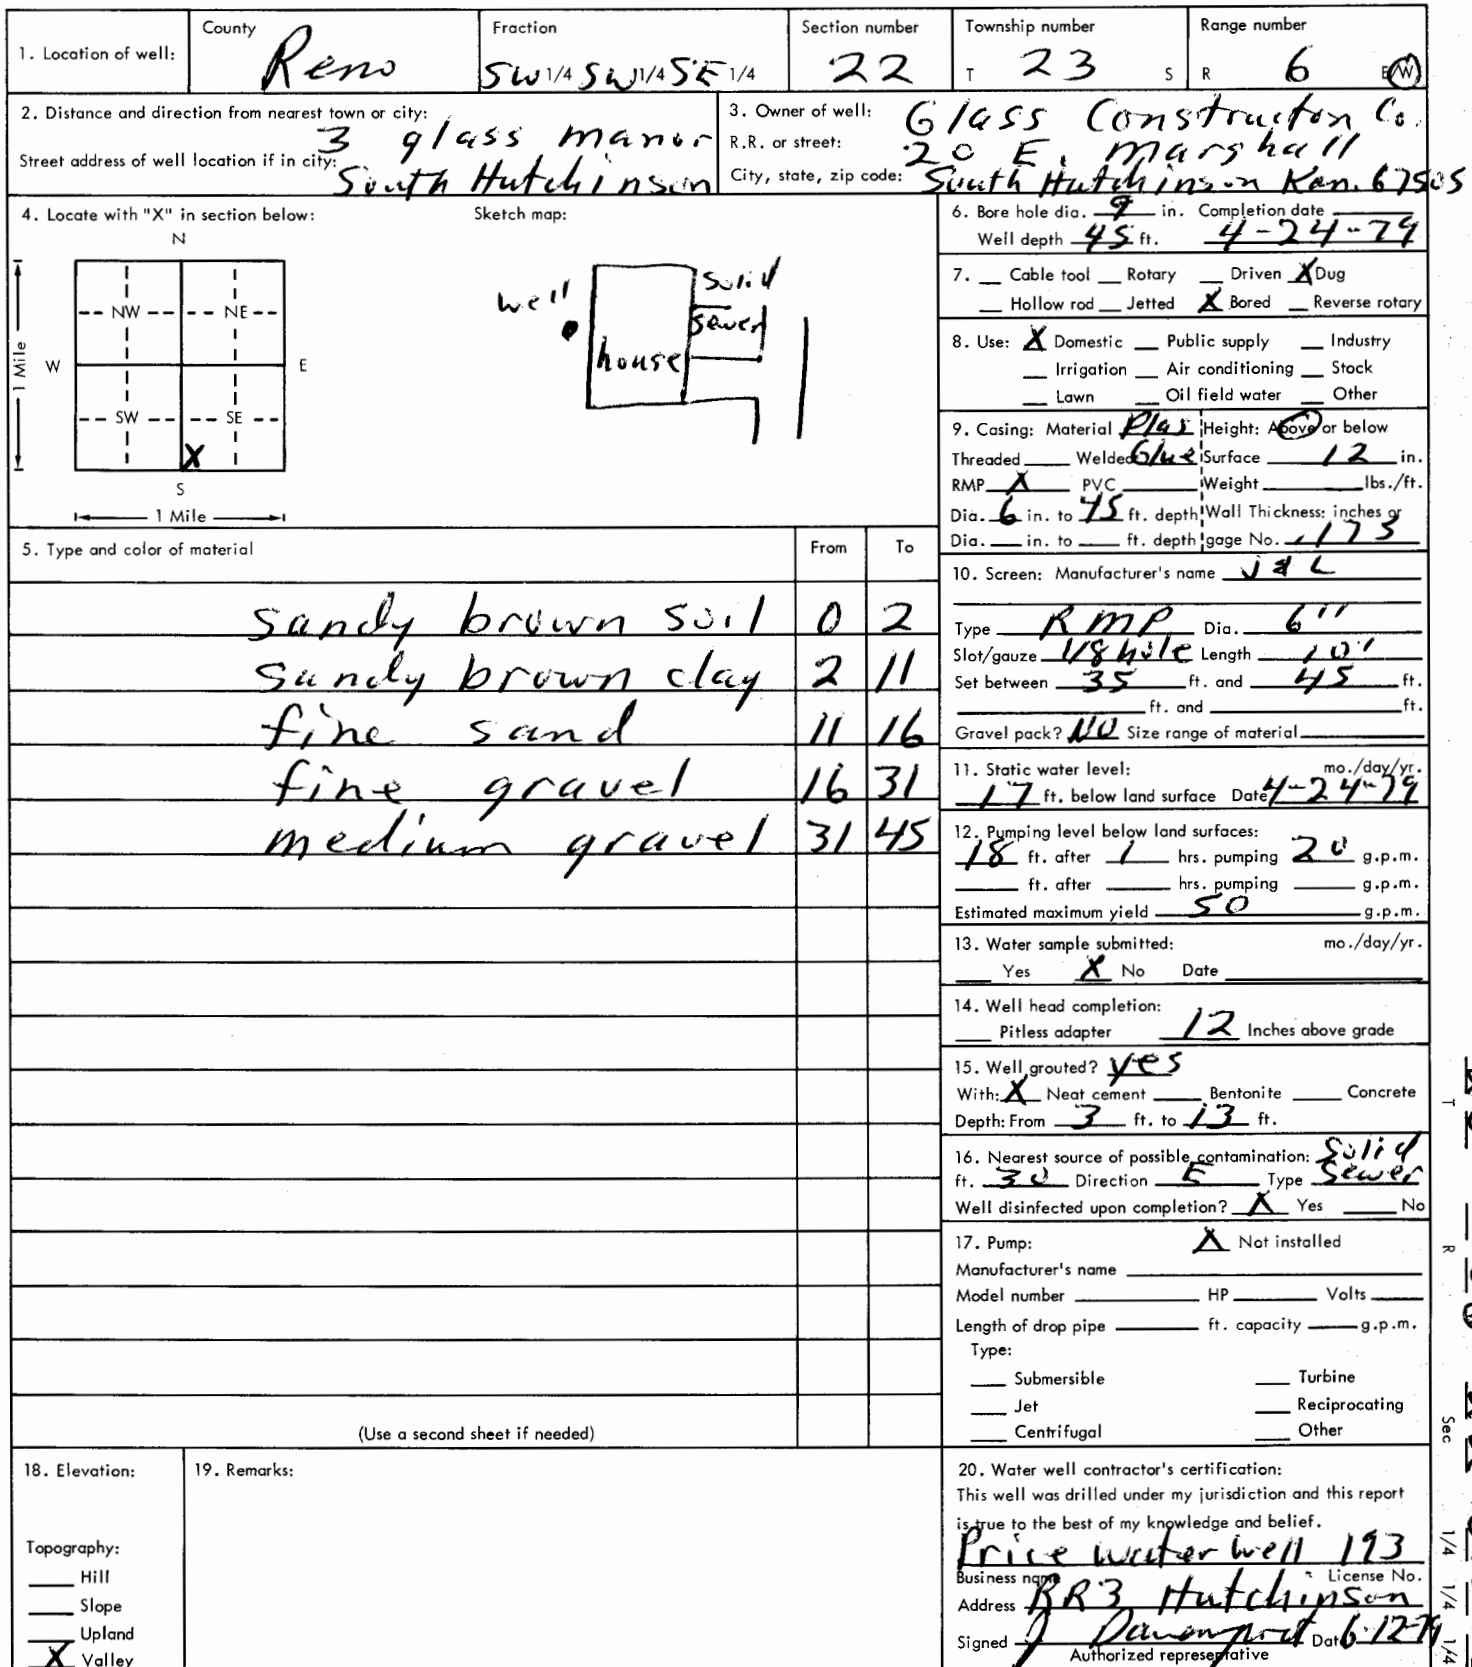 1. Location of well: County Reno Fraction SW 1/4 SW 1/4 SE 1/4 Section number 22 Township number T 23 S Range number R 6 E/W
2. Distance and direction from nearest town or city: 3 glass manor
Street address of well location if in city: South Hutchinson
3. Owner of well: Glass Constructon Co.
R.R. or street: 20 E. Marshall
City, state, zip code: South Hutchinson Kan. 67505
4. Locate with "X" in section below:
N
NW NE
W E
SW SE
X
S
1 Mile
1 Mile
Sketch map:
well
house
solid
sewer
5. Type and color of material From To
sandy brown soil 0 2
sandy brown clay 2 11
fine sand 11 16
fine gravel 16 31
medium gravel 31 45
(Use a second sheet if needed)
6. Bore hole dia. 9 in. Completion date
Well depth 45 ft. 4-24-79
7. __ Cable tool __ Rotary __ Driven X Dug
__ Hollow rod __ Jetted X Bored __ Reverse rotary
8. Use: X Domestic __ Public supply __ Industry
__ Irrigation __ Air conditioning __ Stock
__ Lawn __ Oil field water __ Other
9. Casing: Material Plas Height: Above or below
Threaded ____ Welded Glue Surface 12 in.
RMP X PVC ____ Weight ____ lbs./ft.
Dia. 6 in. to 45 ft. depth Wall Thickness: inches or
Dia. ___ in. to ___ ft. depth gage No. .173
10. Screen: Manufacturer's name J & L
Type RMP Dia. 6"
Slot/gauze 1/8 hole Length 10'
Set between 35 ft. and 45 ft.
____ ft. and ____ ft.
Gravel pack? NO Size range of material ____
11. Static water level: mo./day/yr.
17 ft. below land surface Date 4-24-79
12. Pumping level below land surfaces:
18 ft. after 1 hrs. pumping 20 g.p.m.
____ ft. after ____ hrs. pumping ____ g.p.m.
Estimated maximum yield 50 g.p.m.
13. Water sample submitted: mo./day/yr.
__ Yes X No Date ____
14. Well head completion:
__ Pitless adapter 12 Inches above grade
15. Well grouted? yes
With: X Neat cement ____ Bentonite ____ Concrete
Depth: From 3 ft. to 13 ft.
16. Nearest source of possible contamination: Solid
ft. 30 Direction E Type Sewer
Well disinfected upon completion? X Yes ____ No
17. Pump: X Not installed
Manufacturer's name ____
Model number ____ HP ____ Volts ____
Length of drop pipe ____ ft. capacity ____ g.p.m.
Type:
__ Submersible __ Turbine
__ Jet __ Reciprocating
__ Centrifugal __ Other
18. Elevation:
Topography:
__ Hill
__ Slope
__ Upland
X Valley
19. Remarks:
20. Water well contractor's certification:
This well was drilled under my jurisdiction and this report
is true to the best of my knowledge and belief.
Price water well 193
Business name License No.
Address RR3 Hutchinson
Signed J Davenport Date 6-12-79
Authorized representative
T R Sec 1/4 1/4 1/4